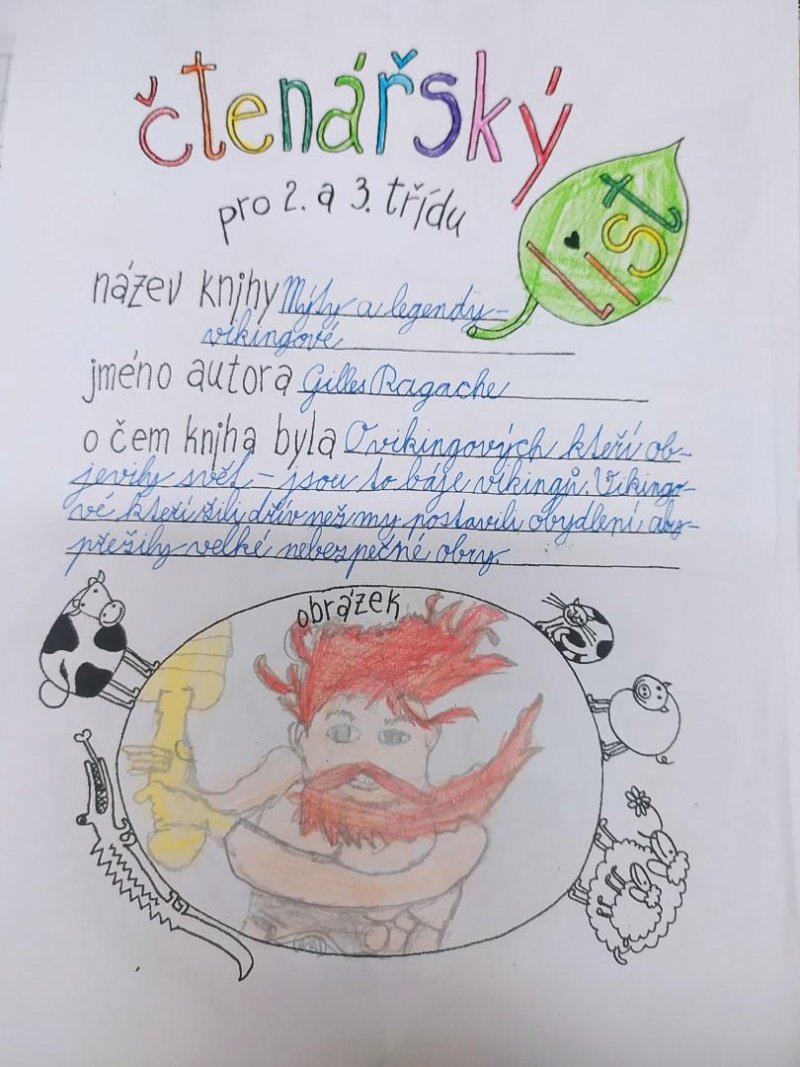 čtenářský
list
pro 2. a 3. třídu
název knihy Mýty a legendy-
vikingové
jméno autora Gilles Ragache
o čem kniha byla O vikingových kteří ob-
jevily svět - jsou to báje vikingů. Vikingo-
vé kteří žili dřív než my postavili obydlení aby
přežily velké nebezpečné obry.
obrázek